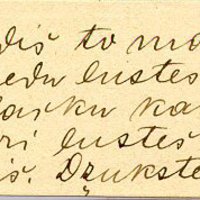 diš to ma
edu lustes
ašku ka
ri lustēs
iš. Dzukste